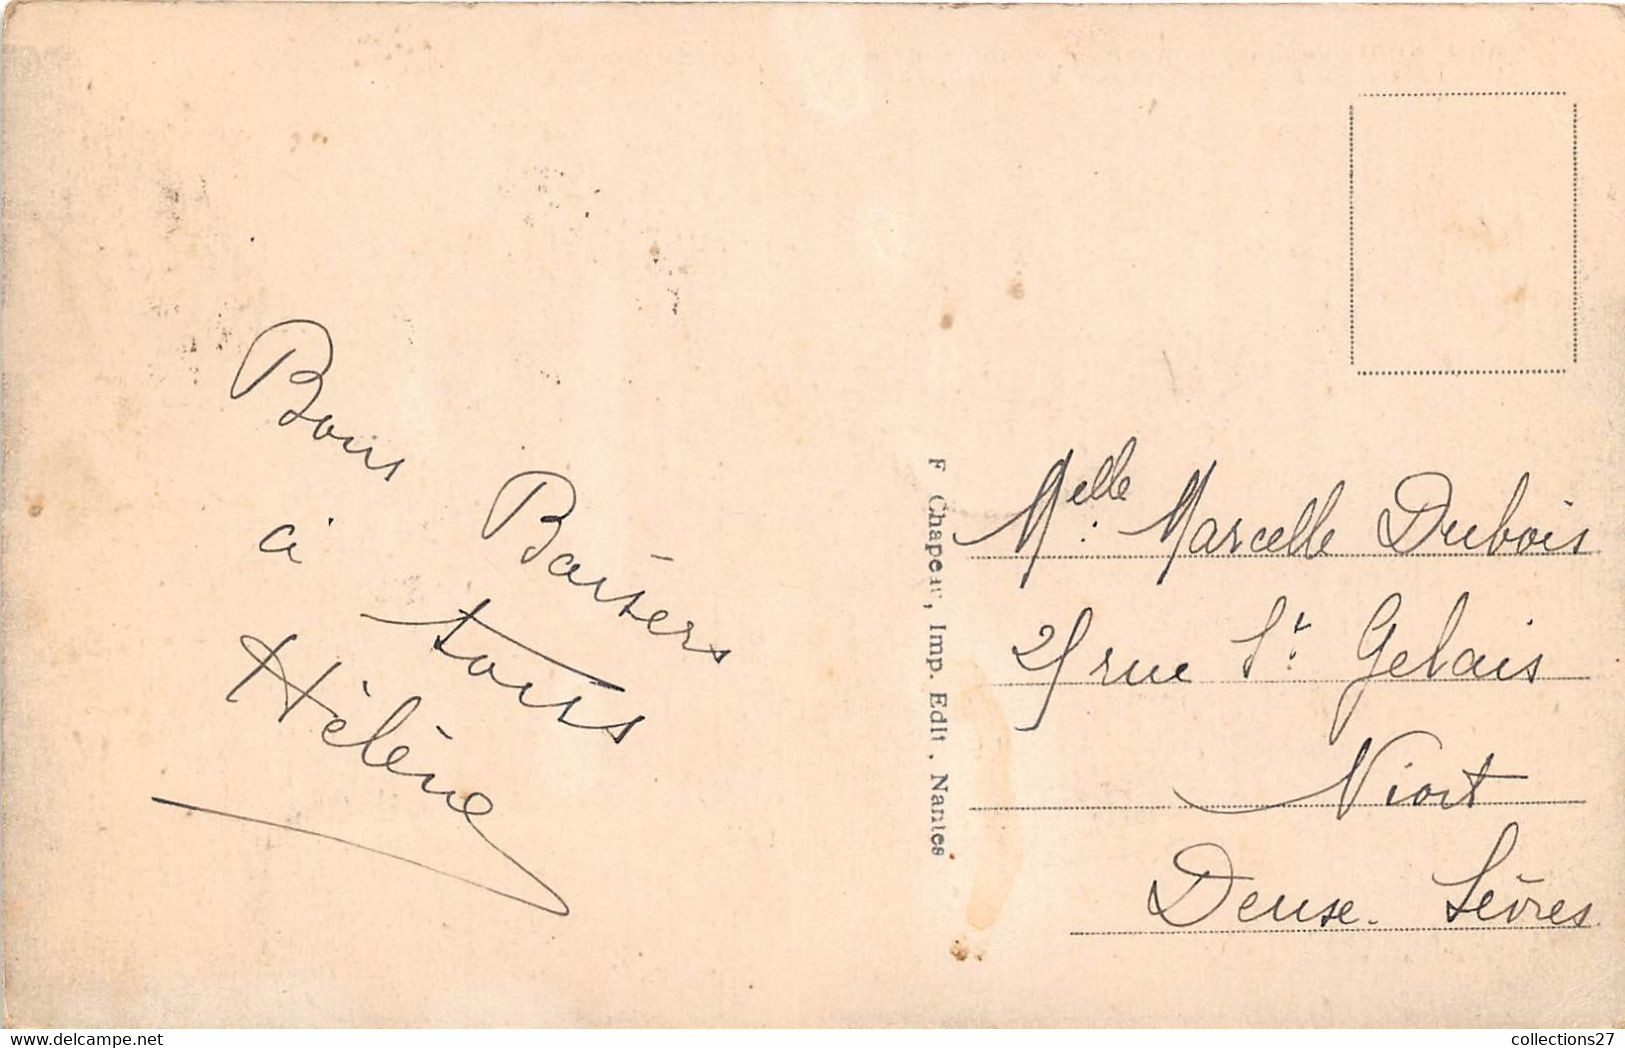 Bons Baisers
à tous
Hélène
F. Chapeau, Imp. Edit., Nantes
Melle Marcelle Dubois
25 rue St Gelais
Niort
Deux-Sèvres
collections27